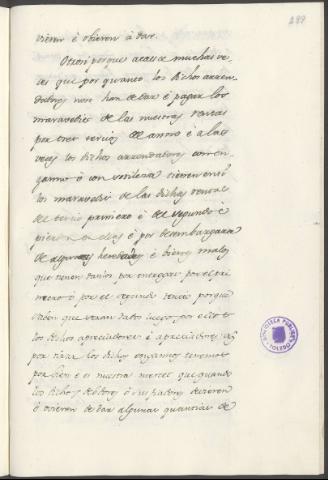 289
vieren é obieren á dar.
Otrosi porque acaesce muchas ve-
ces que por quanto los dichos arren-
dadores non han de dar é pagar los
maravedis de las nuestras rentas
por tres tercios del anno é a las
veces los dichos arrendadores con en-
ganno é con
los maravedis de las dichas rentas
del tercio primero é del segundo é
é por desembargar
de algunas heredades é bienes malos
que tienen dados por por el pri-
mero ó por el segundo tercio porque
saben que seran dados luego por ello
los dichos apreciadores é apreciadores
por tirar los dichos engannos tenemos
por bien é es nuestra merced que quando
los dichos debdores ó sus fiadores dixeren
ó ovieren de dar algunas quantias de
BIBLIOTECA PUBLICA
TOLEDO